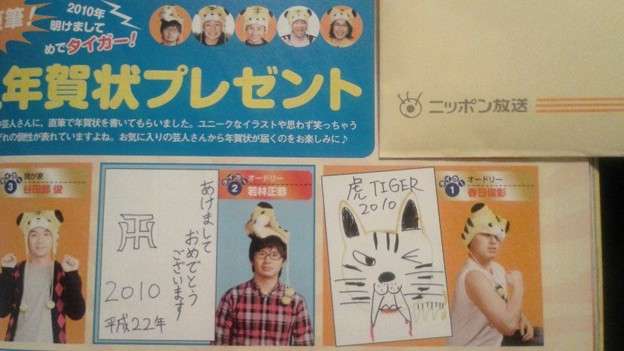 筆!
2010年
明けまして
めでタイガー!
年賀状プレゼント
の芸人さんに、直筆で年賀状を書いてもらいました。ユニークなイラストや思わず笑っちゃう
ぞれの個性が表れていますよね。お気に入りの芸人さんから年賀状が届くのをお楽しみに♪
ニッポン放送
3
我が家
谷田部 俊
あけまして
おめでとう
ございます
2010
平成22年
2
オードリー
若林正恭
虎 TIGER
2010
1
オードリー
春日俊彰